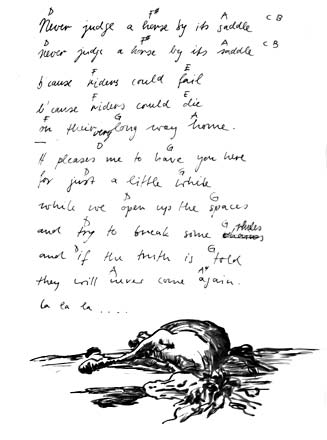 D F# A C B
Never judge a horse by its saddle
D F# A C B
Never judge a horse by its saddle
F E
b'cause riders could fail
F E
b'cause riders could die
F G A
on their very long way home.
D G
It pleases me to have you here
D G
for just a little while
D G
while we open up the spaces
D G
and try to break some rules
D G
and if the truth is told
A A#
they will never come again.
la la la ....